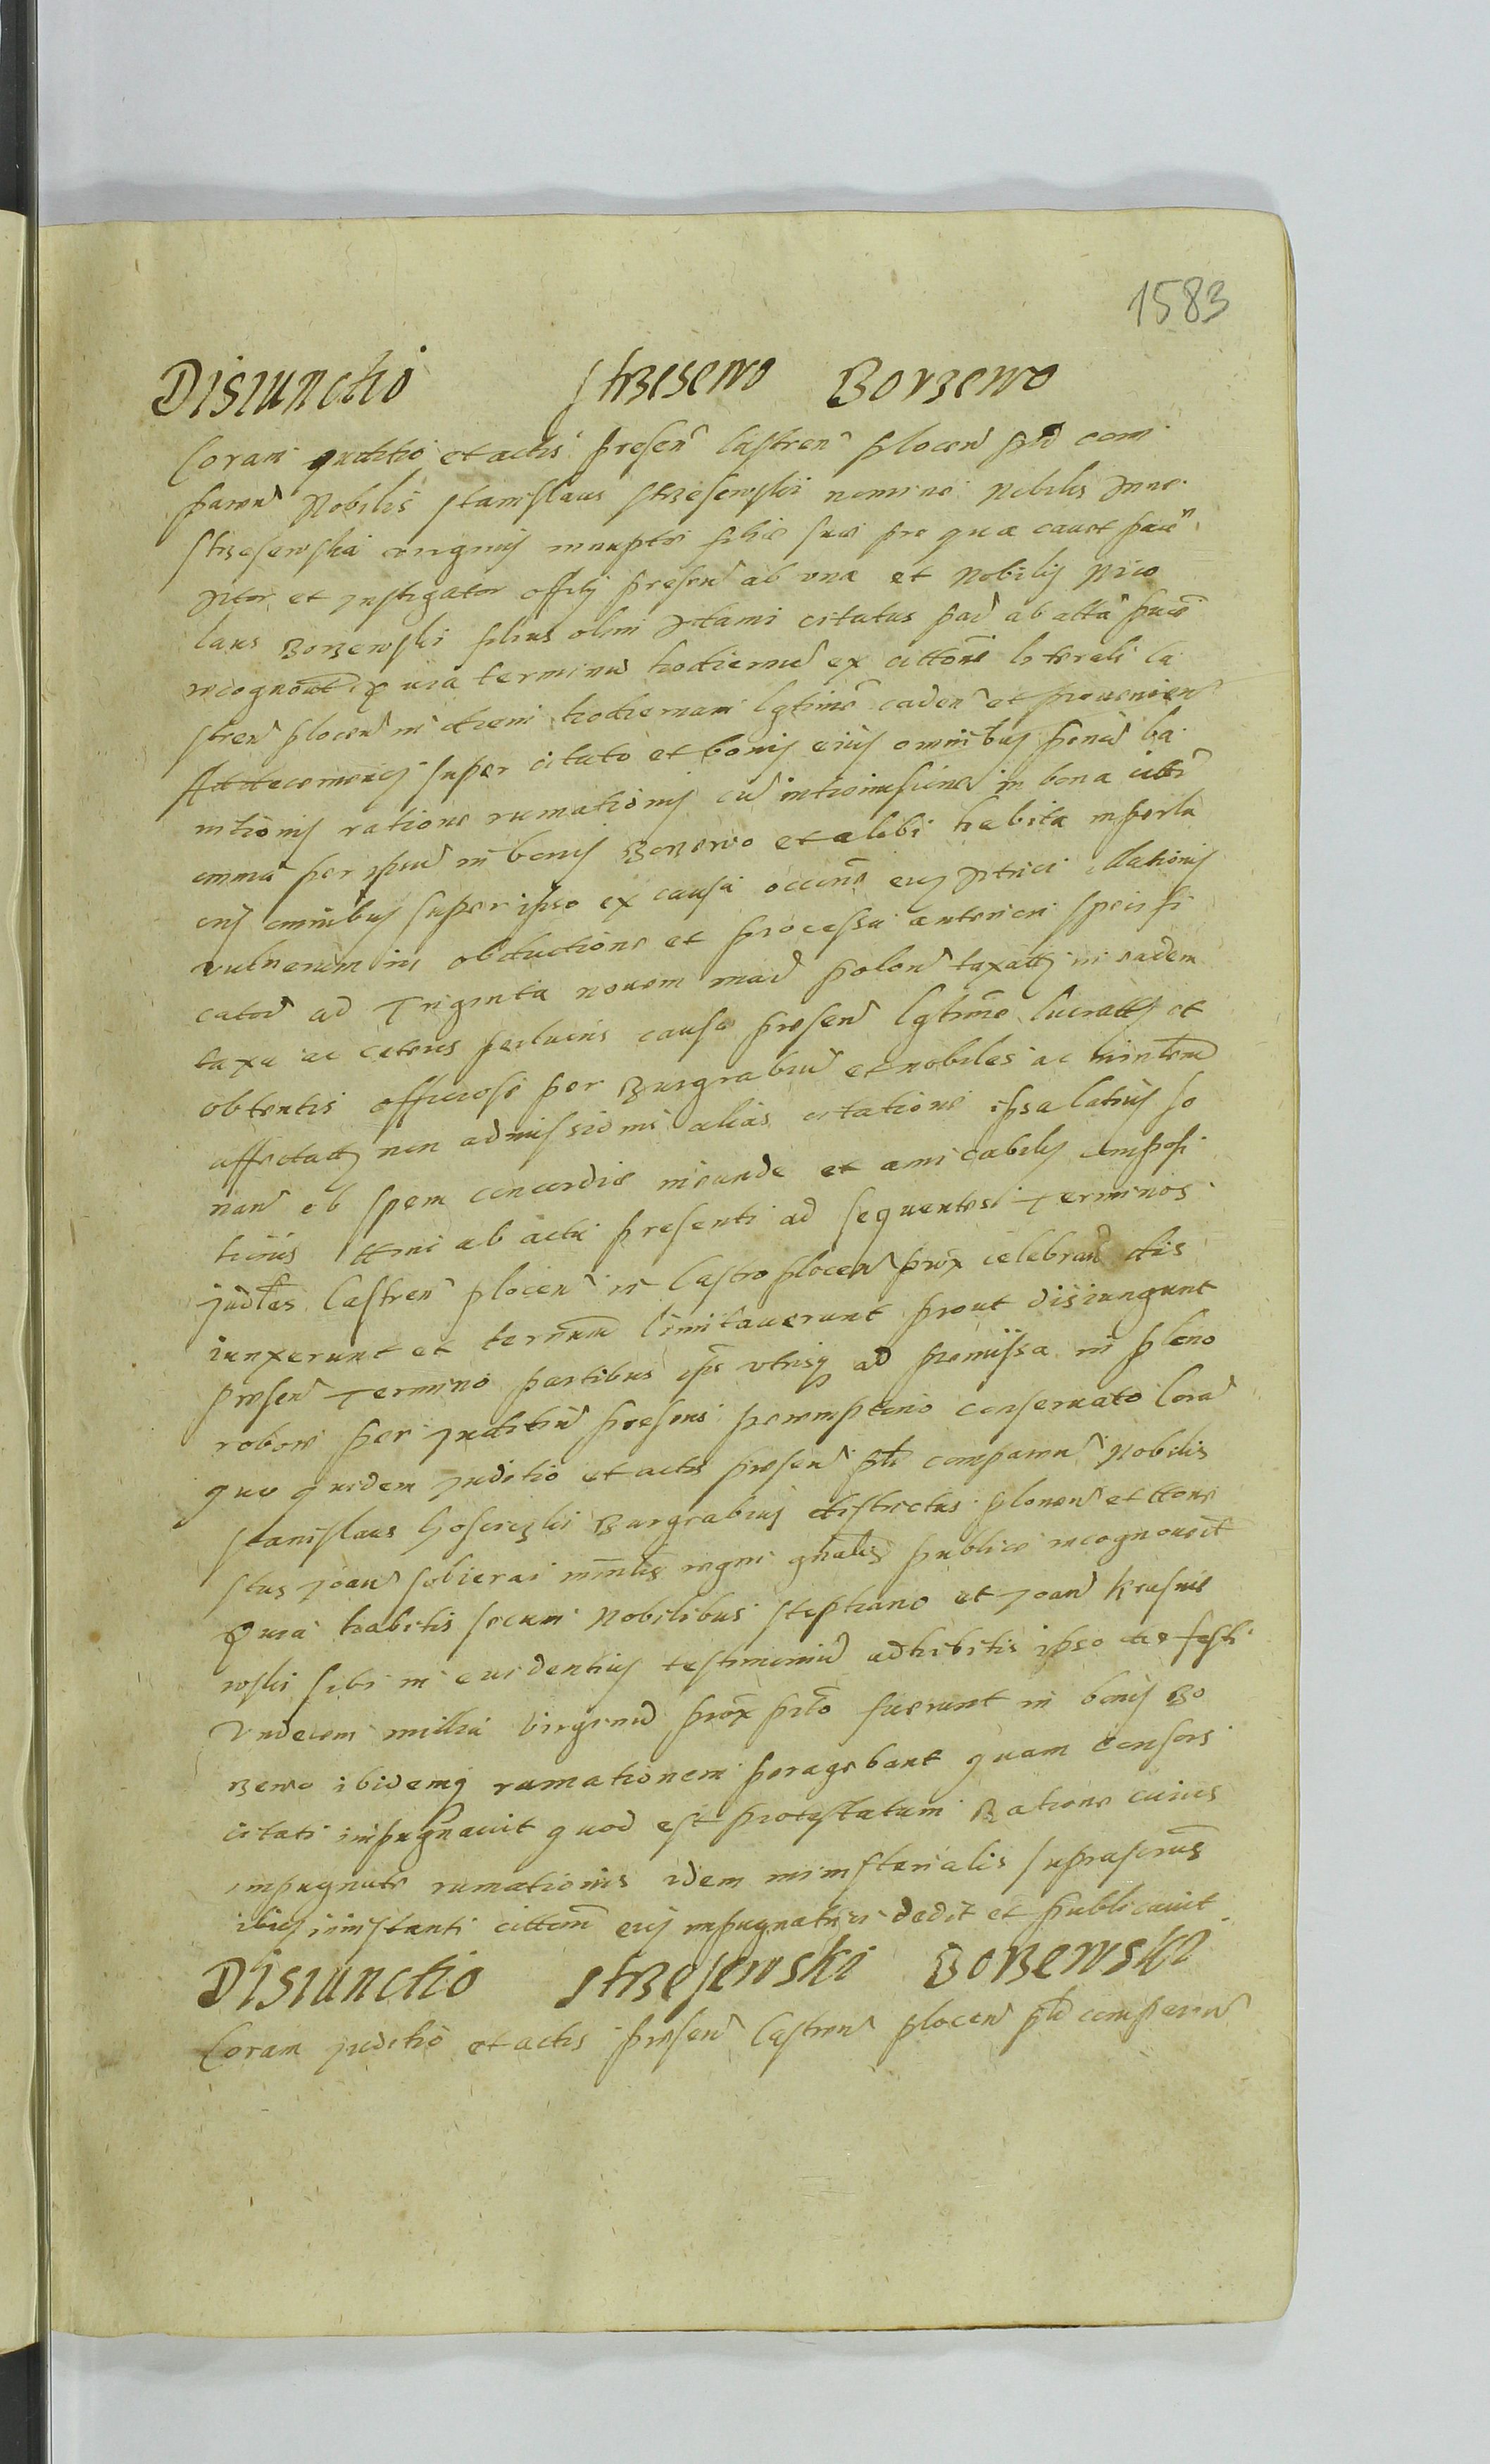 1583
Disiunctio Strzesewo Borzewo
Coram Juditio et actis presen Castren plocen psd com
paren Nobilis Stanislaus Strzesewski nomine Nobilis Anne
Strzesewska virginis innuptæ filie sue pro qua cavet
Actor et Instigator offitii presen ab una et Nobilis Nico
laus Borzewski filius olim Adami citatus pad ab
recognovt Quia terminu hodiernu ex cittone literali Ca
stren plocen in diem hodiernam lgtime caden et provenien
super citato et bonis eius omnibus penau ba
nitionis ratione rumationis cu intromissione in bona
omnia per ipsum in bonis Borzewo et alibi habita
omnibus super ipso ex causa eius Actrici illationis
vulnerum in obductione et processu anteriori specifi
cator ad Triginta novem mar polon taxatis in eadem
taxa ac ceteris perlucris cause presen lgtime lucratis et
obtentis officiose per Burgrabiu et nobiles ac
affectatis non admissionis alias citatione ipsa latius so
nan ob spem concordie ineunde et amicabilis composi
tionis ab actu presenti ad sequentes Terminos
Judles Castren plocen in Castro plocen prox celebran dis
iunxerunt et terminum limitaverunt prout disiungunt
presen Termino partibus ips utrisq ad premissa in pleno
robore per Juditiu presens peremptorio conservato Cora
quo quidem Juditio et actis presen ptr comparen Nobilis
Stanislaus Gosciczki Burgrabius districtus plonen et
stus Joan Sobierai regni gnalis publice recognovit
Quia habitis secum Nobilibus Stephano et Joan Krasnie
wski sibi in evidentius testimoniu adhibitis ipso die festi
Undecem millia Virginu prox prto fuerunt in bonis Bo
rzewo ibidemq rumationem peragebant quam consors
citati impugnavit quod est protestatum Ratione cuius
impugnate rumationis idem ministerialis suprascrius
instanti citton eius impugnatrici dedit et publicavit
Disiunctio Strzesewski Borzewski
Coram Juditio et actis presen Castren plocen ptr comparen